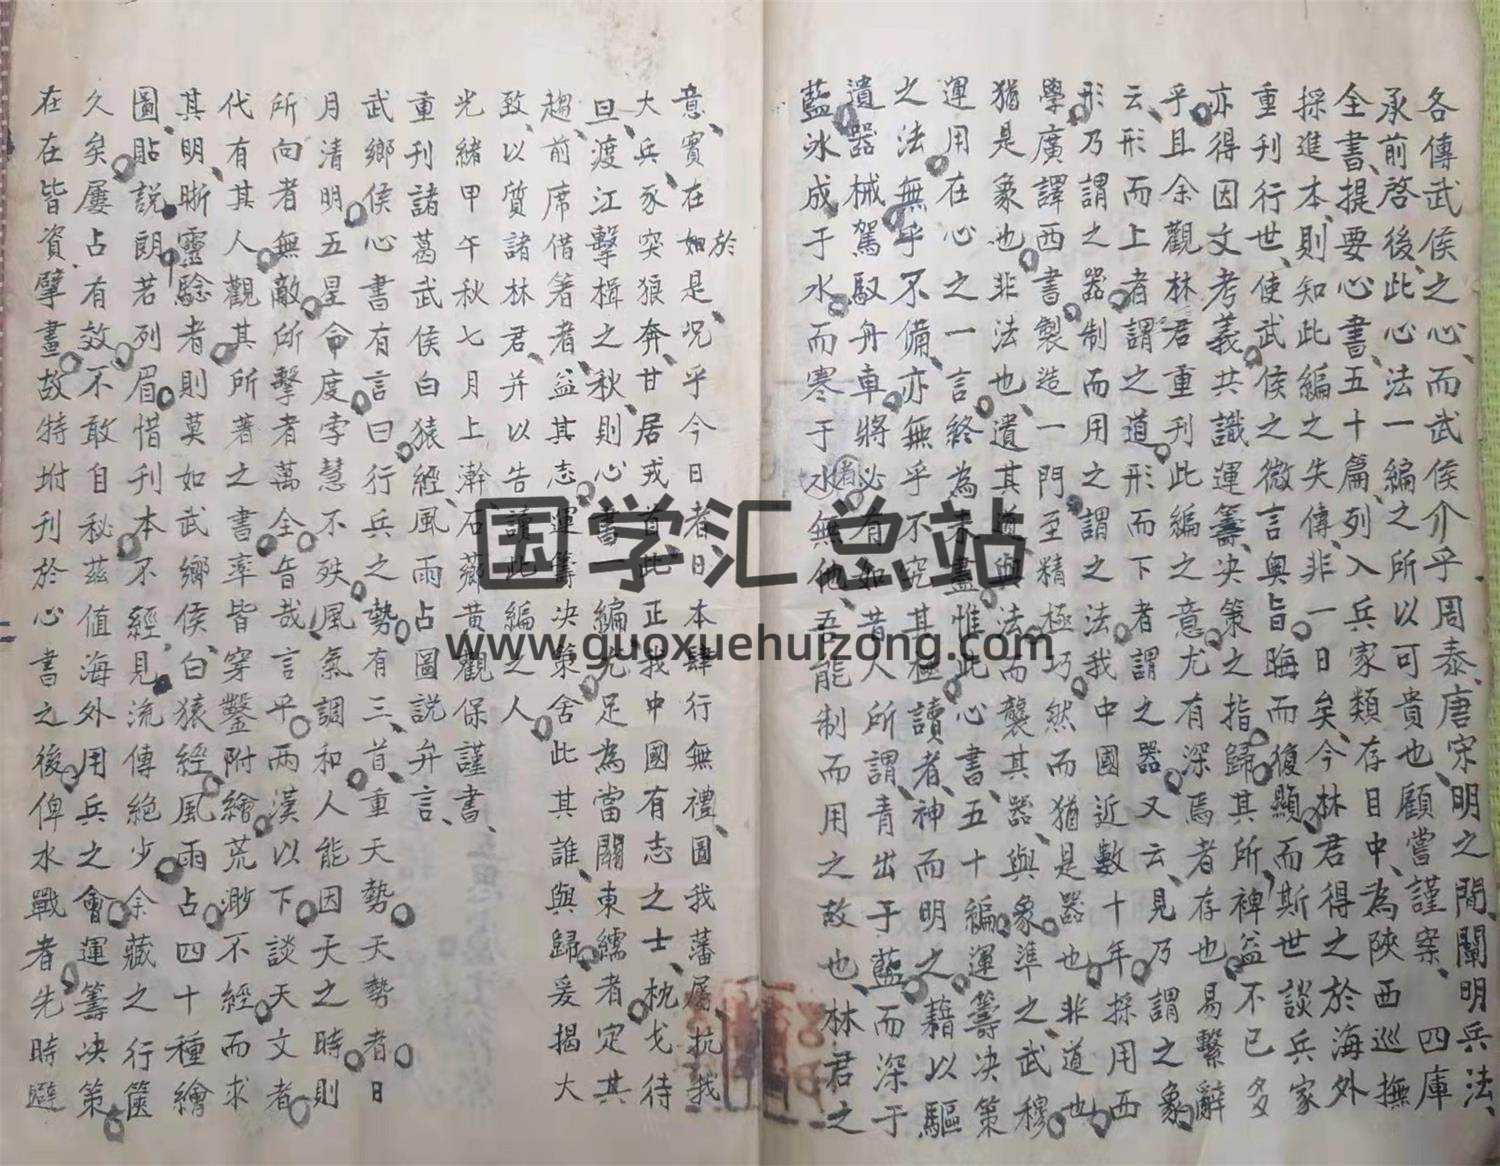 各傳武侯之心、而武侯介乎周泰、唐宋明之間、闡明兵法、
承前啓後、此心法一編之所以可貴也、顧嘗謹案、四庫
全書、提要心書、五十篇、列入兵家類存目中、為陝西巡撫
採進本、則知此編之失傳、非一日矣、今林君得之於海外
重刊行世、使武侯之微言奥旨、晦而復顯、而斯世談兵家
亦得因文考義、共識運籌决策之指歸、其所裨益不已多
乎、且余觀林君重刊此編之意、尤有深焉者存也、易繫辭
云、形而上者謂之道、形而下者謂之器、又云、見乃謂之象、
形乃謂之器、制而用之謂之法、我中國近數十年、採用西
學、廣譯西書、製造一門、至精極巧、然而猶是器也、非道也、
猶是象也、非法也、遺其道與法、而襲其器與象、準之武穆
運用在心之一言、終為未盡、惟此心書五十編、運籌决策
之法、無乎不備、亦無乎不究其極、讀者神而明之、藉以驅
遺器械、駕馭舟車、將必有如昔人所謂、青出于藍、而深于
藍、冰成于水、而寒于水者、無他、吾能制而用之故也、林君之
意、實在於如是、况乎今日者、日本肆行無禮、圖我藩屬、抗我
大兵、豕突狼奔、甘居戎首、此正我中國有志之士、枕戈待
旦、渡江擊楫之秋、則心書一編、尤足為當關東繻者、定其
趨、前席借箸者、益其志、運籌决策、舍此其誰與歸、爰揭大
致、以質諸林君、并以告讀此編之人、
光緒甲午秋七月上澣石薌黃觀保謹書、
重刊諸葛武侯白猿經、風雨占圖說弁言、
武鄉侯心書有言曰、行兵之勢有三、首重天勢、天勢者、日
月清明、五星命度、孛慧不殃、風氣調和、人能因天之時、則
所向者無敵、所擊者萬全、旨哉言乎、兩漢以下、談天文者、
代有其人、觀其所著之書、率皆穿鑿附繪、荒渺不經、而求
其明晰靈騐者、則莫如武鄉侯、白猿經、風雨占四十種、繪
圖貼説、朗若列眉、惜刊本不經見、流傳絕少、余藏之行篋
久矣、屢占有效、不敢自秘、茲值海外用兵之會、運籌决策、
在在皆資擘畫、故特坿刊於心書之後、俾水戰者、先時避
国学汇总站
www.guoxuehuizong.com